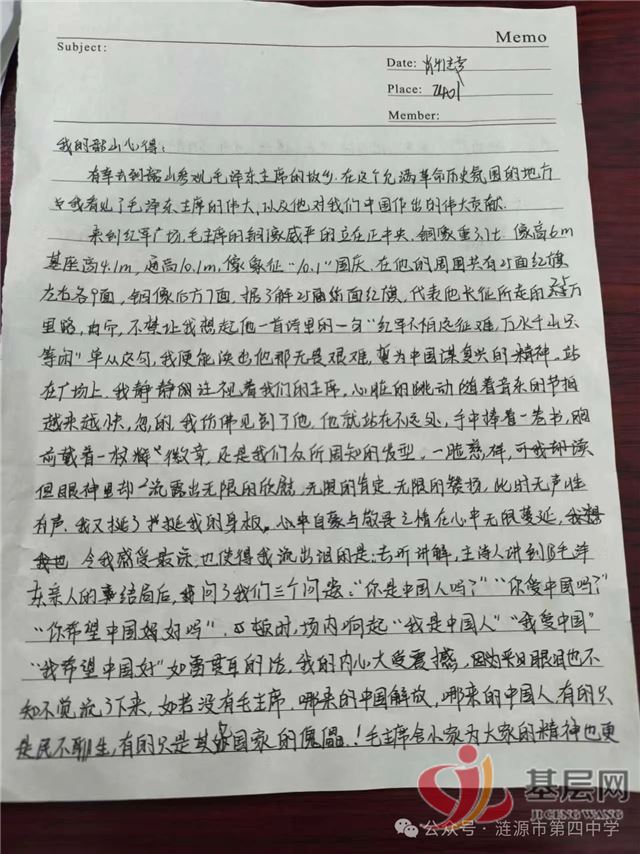 Memo
Subject:
Date:
Place: 2401
Member:
我的韶山心得:
有幸去到韶山参观毛泽东主席的故乡.在这个充满革命历史氛围的地方
我看见了毛泽东主席的伟大,以及他对我们中国作出的伟大贡献.
来到红军广场,毛主席的铜像威严的立在正中央.铜像重3.7t 像高6m
基座高4.1m,通高10.1m,像象征"10.1"国庆.在他的周围共有25面红旗
左右各9面,铜像后方7面.据了解25面红旗,代表他长征所走的二万五
里路,由尔,不禁让我想起他一首诗里的一句"红军不怕远征难,万水千山只
等闲"单从这句,我便能读出他那无畏艰难,誓为中国谋复兴的精神.站
在广场上.我静静的注视着我们的主席,心脏的跳动随着音乐的节拍
越来越快,忽的,我仿佛见到了他,他就站在不远处,手中捧着一卷书,胸
前戴着一枚徽章,还是我们众所周知的发型,一脸慈祥,可我却读
但眼神里却流露出无限的欣慰,无限的肯定.无限的赞扬,此时无声胜
有声.我又挺了挺我的身板,心中自豪与敬畏之情在心中无限蔓延,我想
我也 令我感受最深,也使得我流出泪的是:去听讲解,主持人讲到毛泽
东亲人的结局后,问了我们三个问题:"你是中国人吗?""你爱中国吗?"
"你希望中国好吗",那时,场内响起"我是中国人""我爱中国"
"我希望中国好"如雷贯耳的话,我的内心大受震撼,眼泪也不
知不觉流了下来,如若没有毛主席.哪来的中国解放,哪来的中国人,有的只
是民不聊生,有的只是其他国家的傀儡!毛主席舍小家为大家的精神也更
基层网
JI CENG WANG
公众号·涟源市第四中学